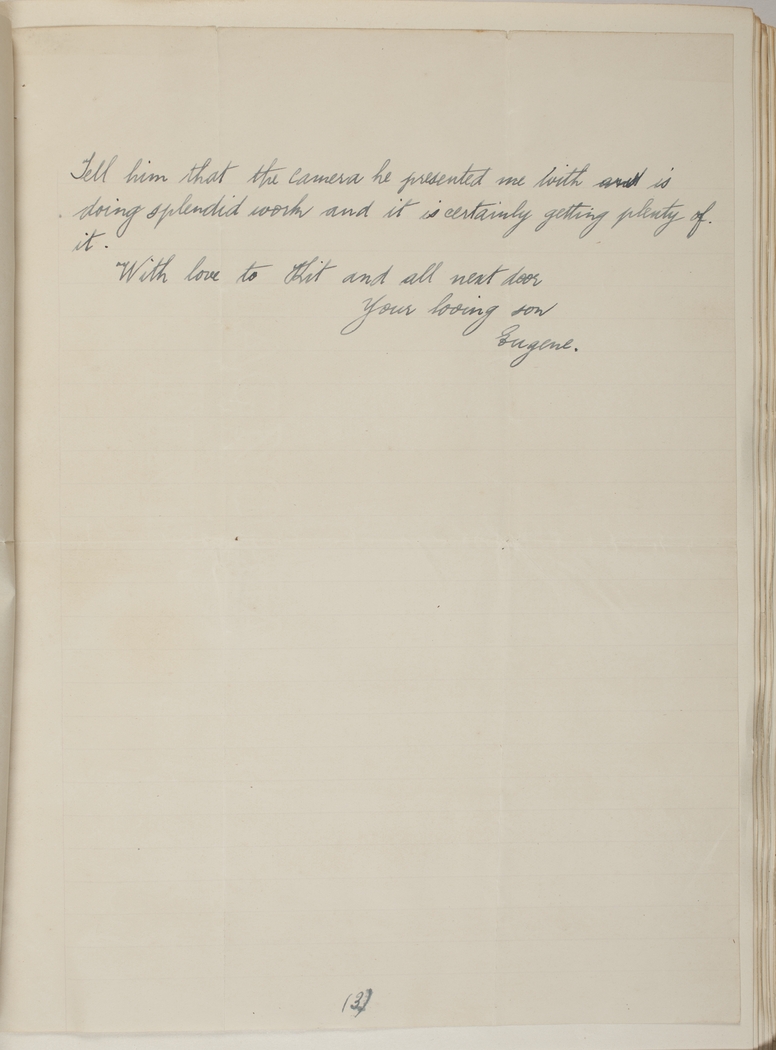 Tell him that the camera he presented me with and is
doing splendid work and it is certainly getting plenty of.
it.
With love to Kit and all next door
Your loving son
Eugene.
(3)